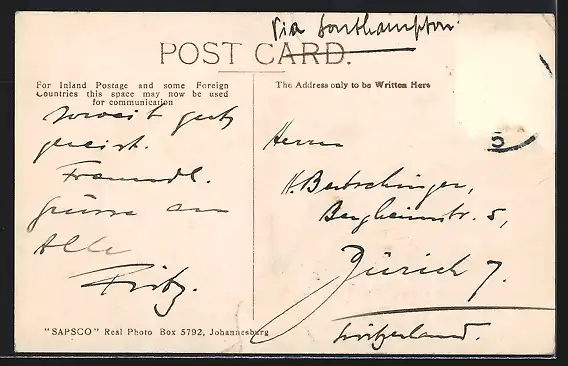 Via Southampton.
POST CARD.
For Inland Postage and some Foreign
Countries this space may now be used
for communication
The Address only to be Written Here
soweit gut
gereist.
Freundl.
Grüsse an
Alle
Fritz.
Herrn
H. Bertschinger,
Bergheimstr. 5,
Zürich 7.
Switzerland.
"SAPSCO" Real Photo Box 5792, Johannesburg
5